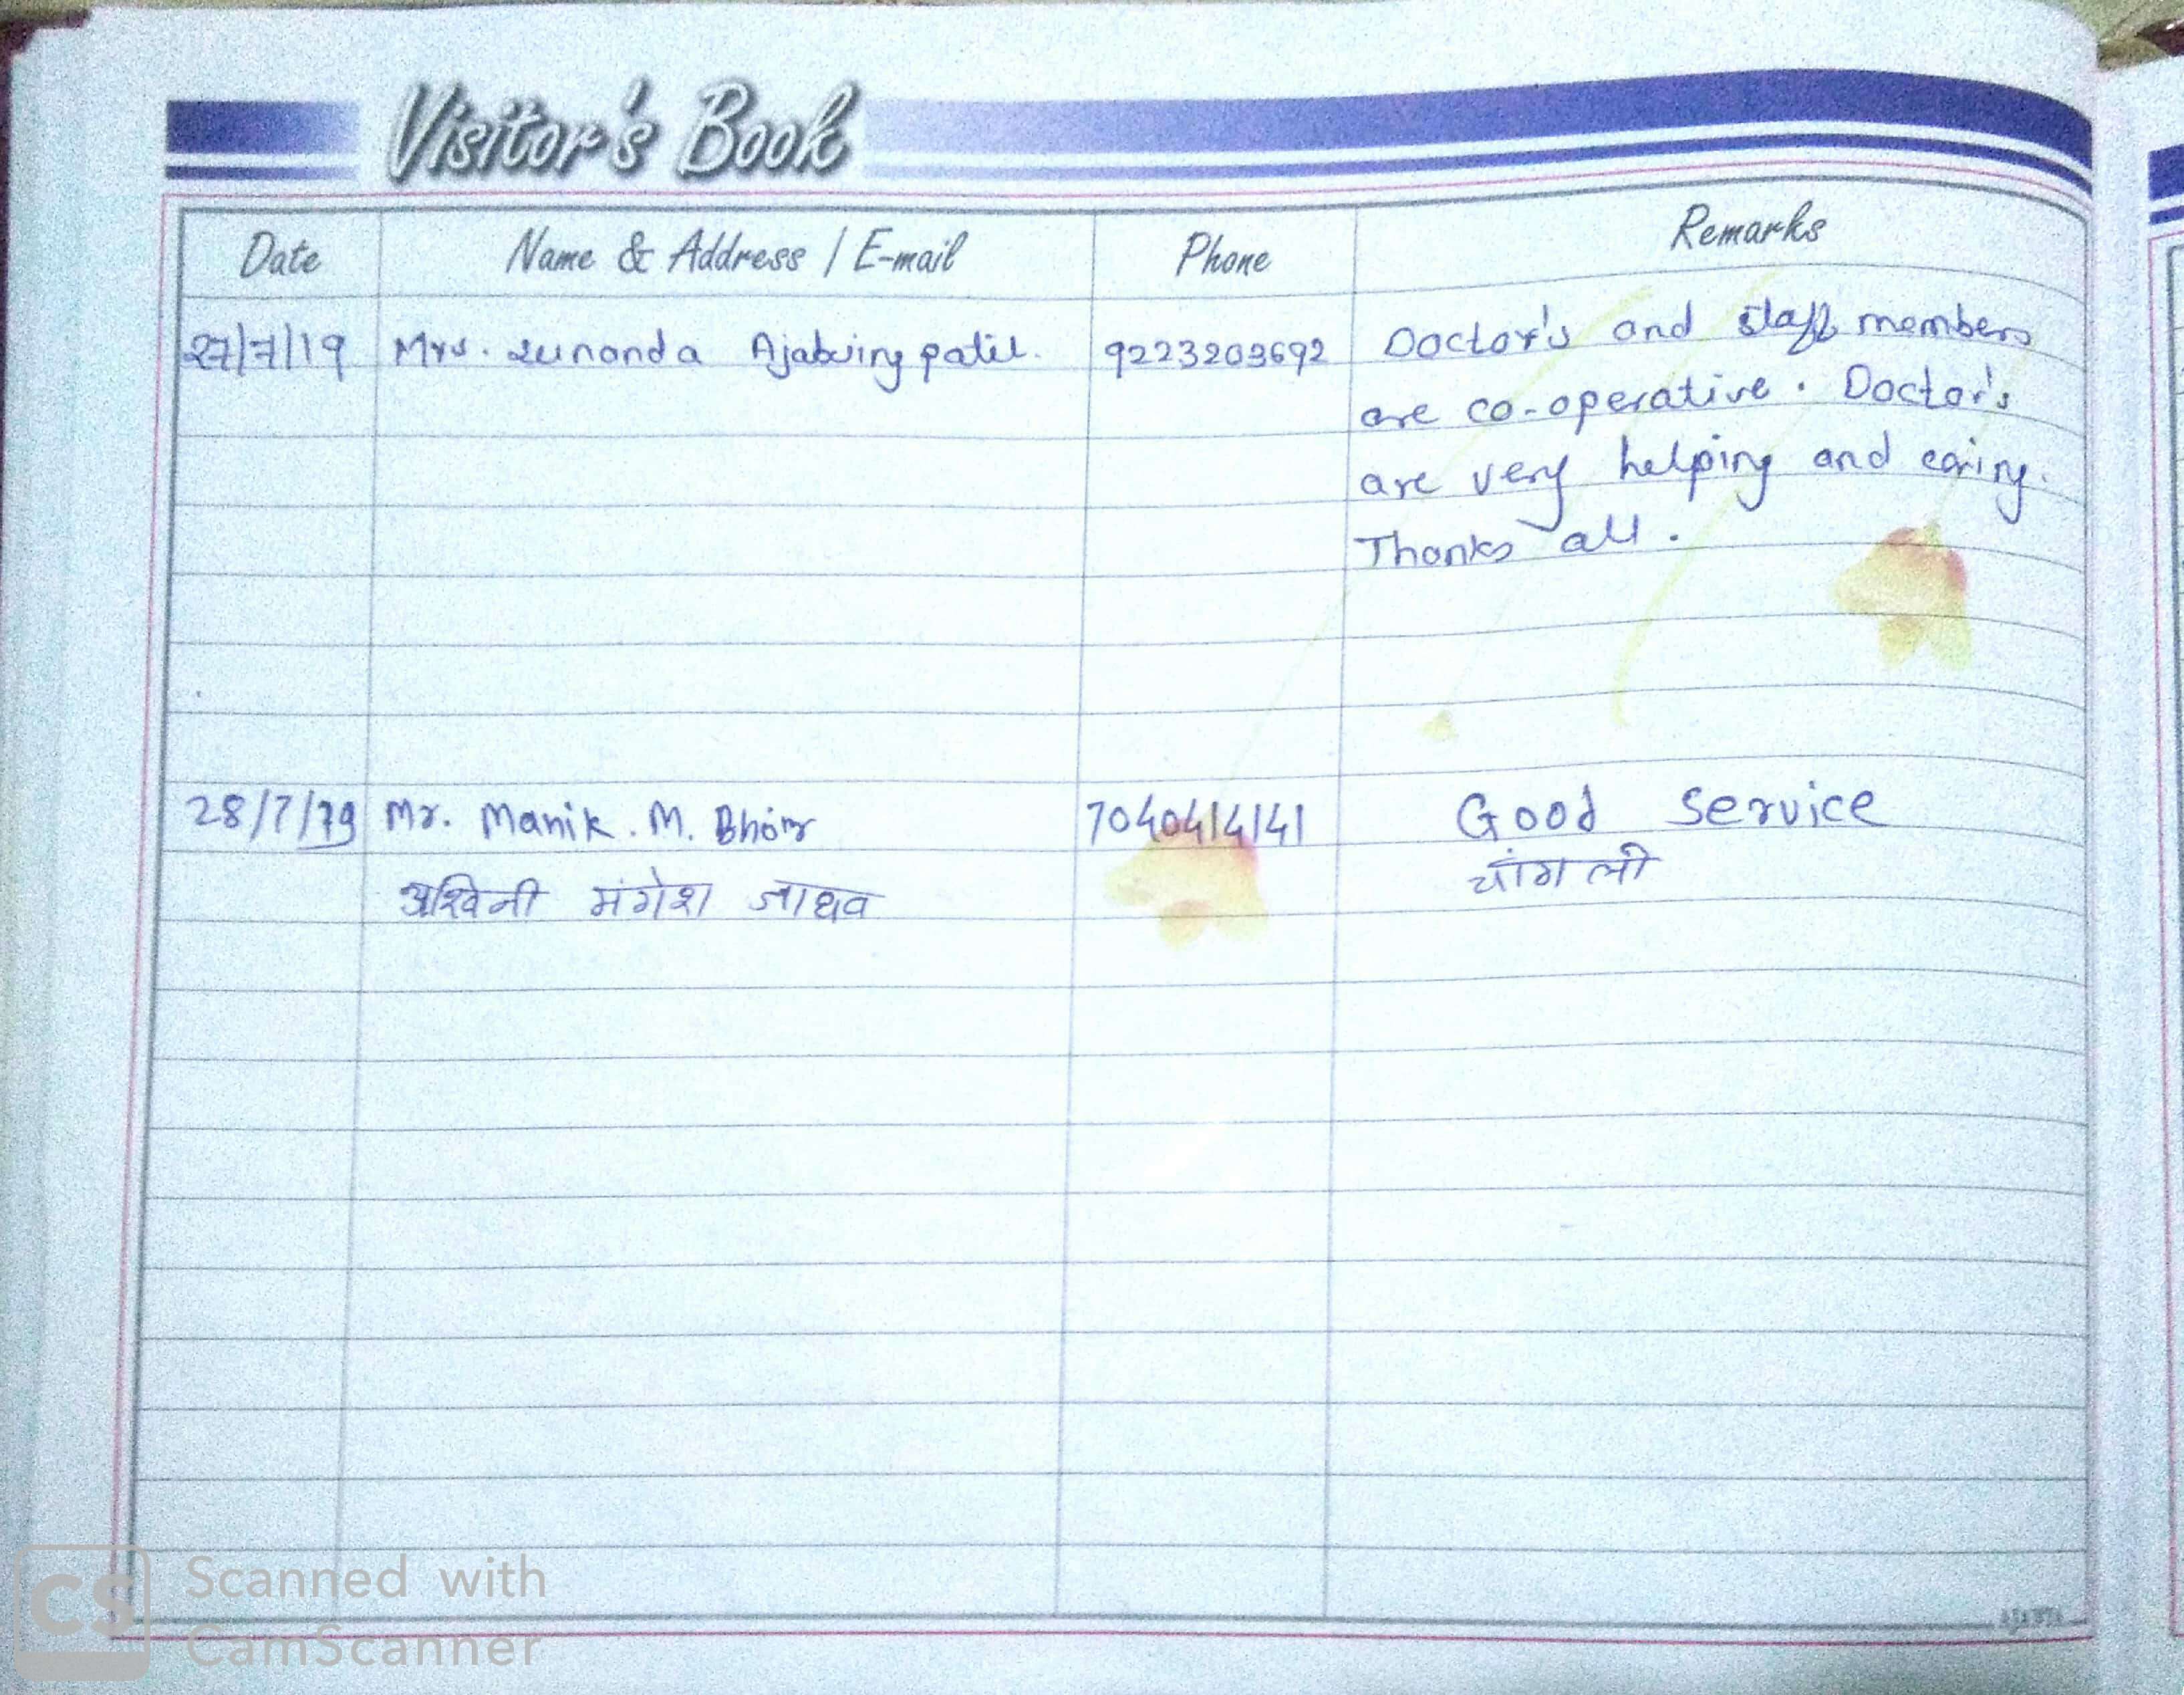 Visitor's Book
Date Name & Address / E-mail Phone Remarks
27/7/19 Mrs. Sunanda Ajabsing patil. 9223203692 Doctor's and staff members
are co-operative. Doctor's
are very helping and caring.
Thanks all.
28/7/19 Mr. Manik. M. Bhoir 7040414141 Good Service
अश्विनी मंगेश जाधव चांगली
CS Scanned with
CamScanner